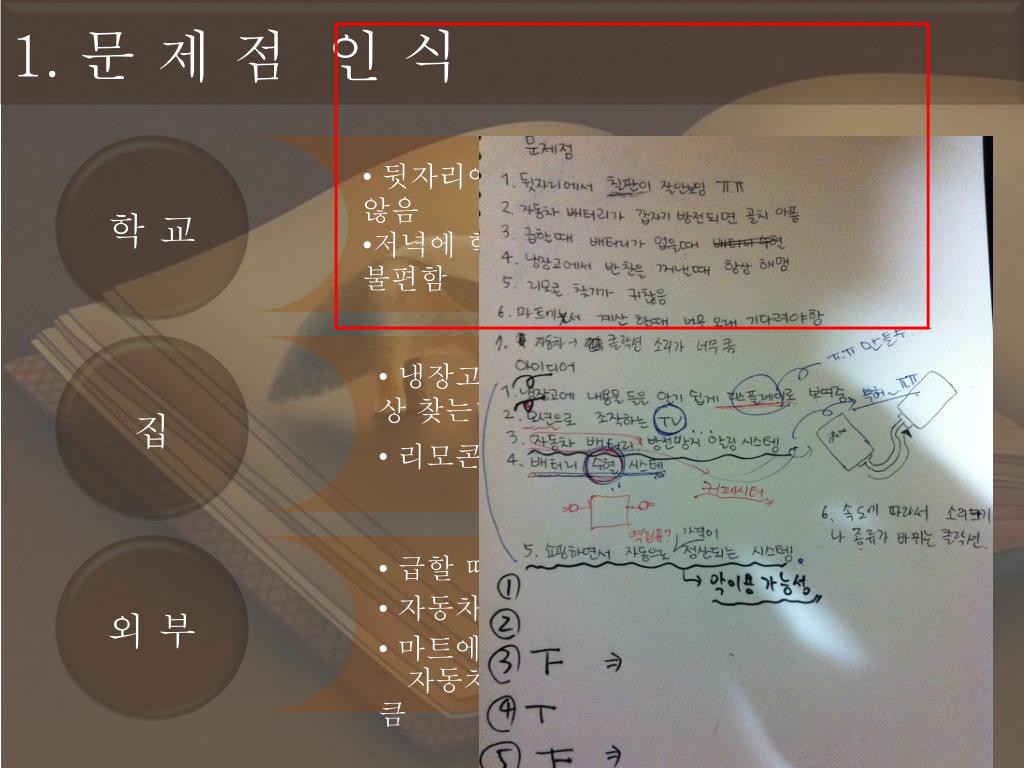 1. 문 제 점 인 식
학 교
• 뒷자리에
않음
•저녁에 학
불편함
집
• 냉장고
상 찾는
• 리모콘
외 부
• 급할 때
• 자동차
• 마트에
자동차
큼
문제점
1. 뒷자리에서 칠판이 잘안보임 ㅠ.ㅠ
2. 자동차 배터리가 갑자기 방전되면 골치 아픔
3. 급한때 배터리가 없을때 배터리 수혈
4. 냉장고에서 반찬을 꺼낼때 항상 헤맴
5. 리모콘 찾기가 귀찮음
6. 마트에서 계산 할때 너무 오래 기다려야함
7. 자동차→ 클락션 소리가 너무 큼.
아이디어
1. 냉장고에 내용물들을 알기 쉽게 디스플레이로 보여줌
ㅠ.ㅠ 만들수
ㅠ.ㅠ
2. 모션으로 조작하는 TV ...
3. 자동차 배터리 방전방지 알림 시스템
4. 배터리 수혈 시스템
커패시터
6. 속도에 따라서 소리크기
나 종류가 바뀌는 클락션.
역립유? 가격이
5. 쇼핑하면서 자동으로 정산되는 시스템.
→ 악이용 가능성
①
②
③ T ⇒
④ T
⑤ F ⇒